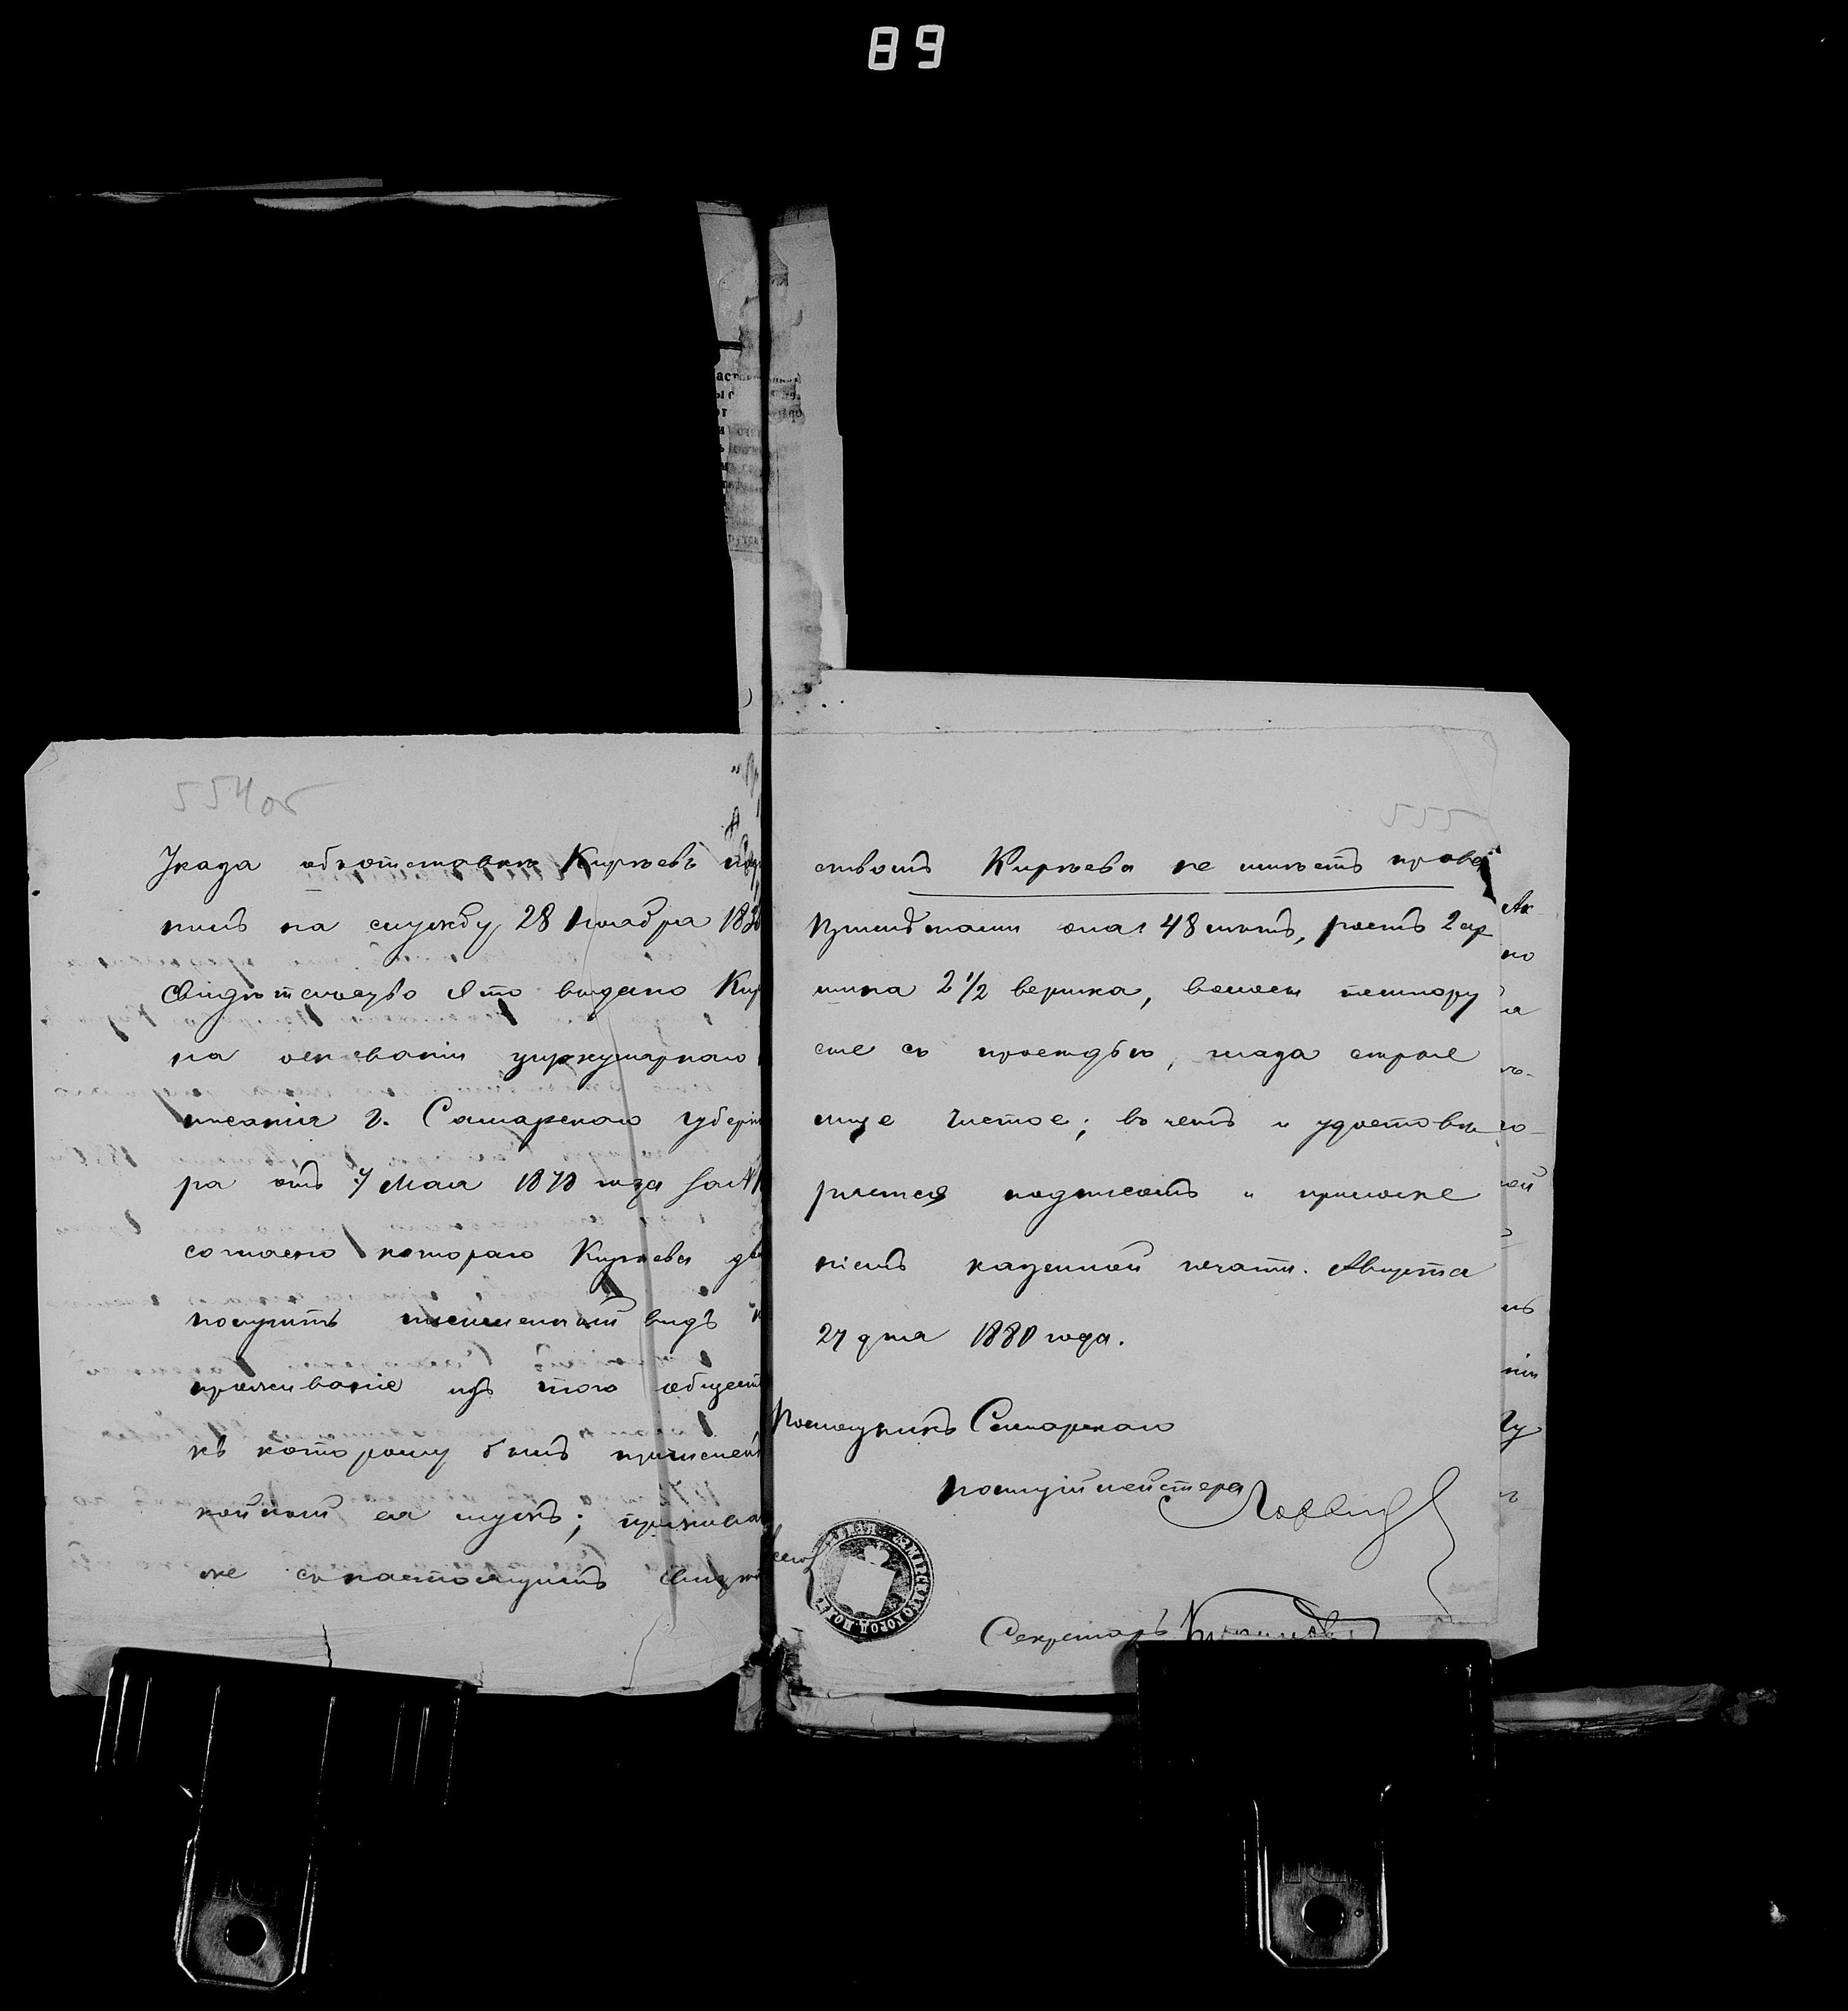 89
554 об
Указа объ отставки Кирѣевъ
пилъ на службу 28 Ноября 183
Свидѣтельство это выдано Кир
на основаніи циркулярнаго
писанія г. Самарскаго губерн
ра отъ 7 Мая 1878 года за №
согласно котораго Кирѣева
получить письменный видъ
проживаніе изъ того общест
къ которому былъ причислен
койный ея мужъ;
же съ настоящимъ свидѣ
555
ствомъ Кирѣева не имѣетъ права
Примѣтами она: 48 лѣтъ, ростъ 2 ар
шина 2 1/2 вершка, волосы темнору
сые съ просѣдью, глаза сѣрые
лице чистое; въ чемъ и удостовѣ
ряется подписомъ и приложе
ніемъ казенной печати. Августа
27 дня 1880 года.
Помощникъ Самарскаго
полицiймейстера
Секретарь